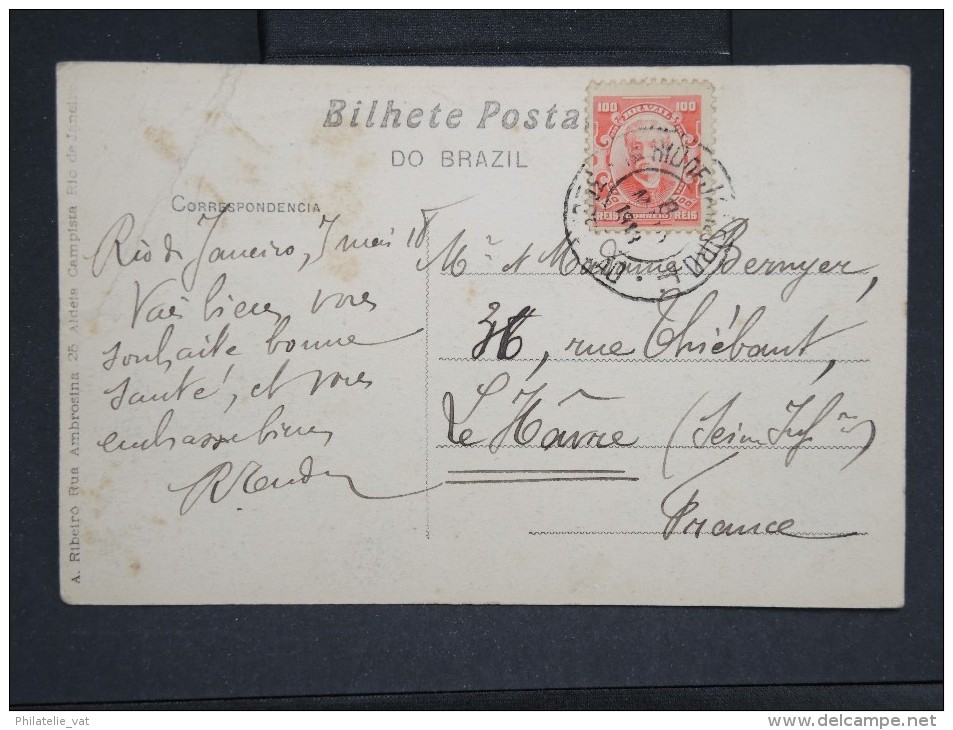 Bilhete Posta
DO BRAZIL
CORRESPONDENCIA
A. Ribeiro Rua Ambrosina 25 Aldeia Campista Rio de Janeiro
100 BRAZIL 100
REIS CORREIO REIS
RIO DE JANEIRO
1913
Rio de Janeiro, 7 mai
Vais bien, vous
souhaite bonne
santé, et vous
embrasse bien
Mr et Madame Bernyer,
36, rue Thiébaut,
Le Hâvre (Seine Infre)
France
Philatelie_vat
www.delcampe.net